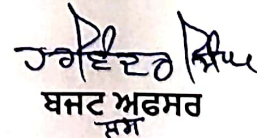 ਹਰਿੰਦਰ ਸਿੰਘ
ਬਜਟ ਅਫਸਰ